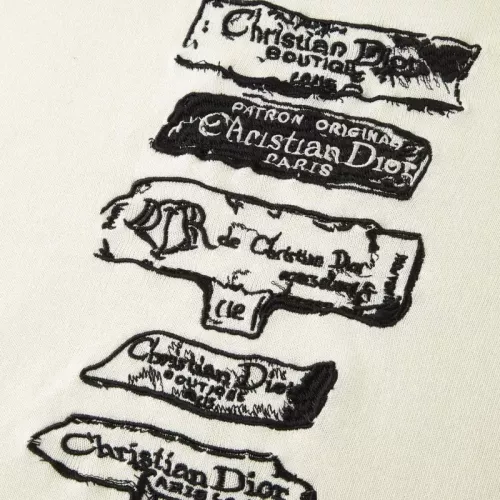 Christian Dior
BOUTIQUE
PATRON ORIGINAL
Christian Dior
PARIS
DIOR
de Christian Dior
Cie
Christian Dior
BOUTIQUE
Christian Dior
PARIS